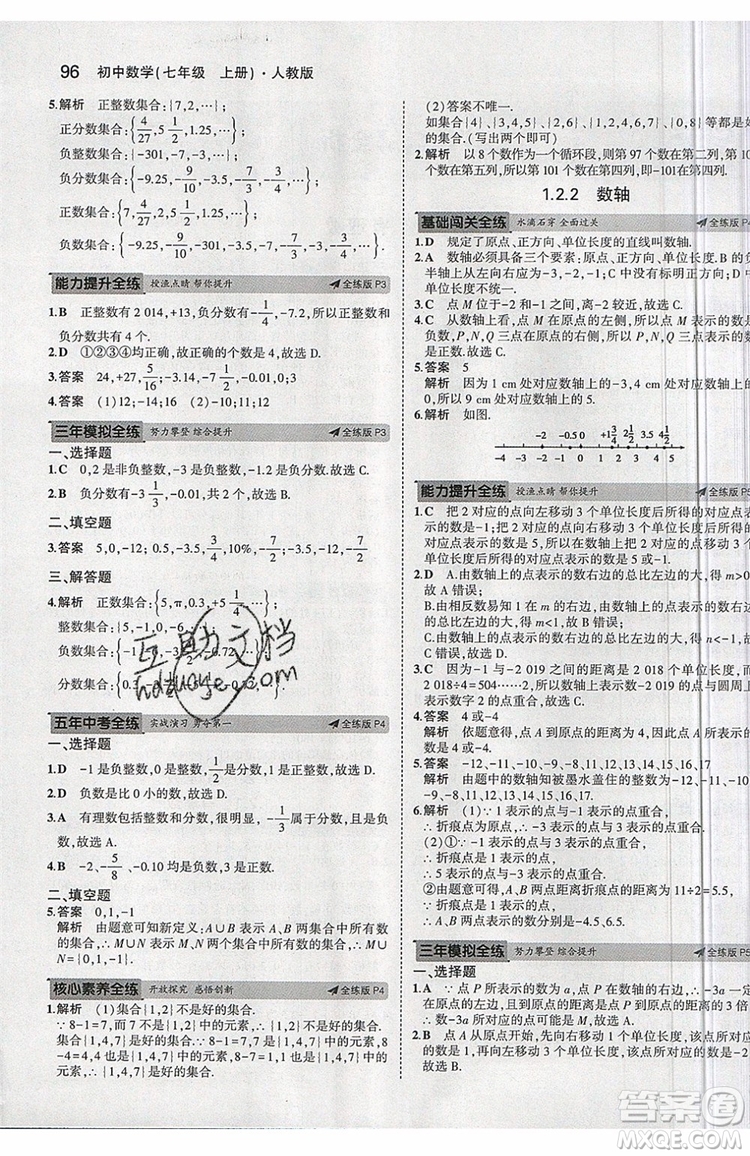 96 初中数学(七年级 上册)·人教版
5.解析 正整数集合:{7,2,…};
正分数集合:{4/27,5 1/2,1.25,…};
负整数集合:{-301,-7,-3,…};
负分数集合:{-9.25,-9/10,-3.5,…};
正数集合:{4/27,7,5 1/2,1.25,2,…};
负数集合:{-9.25,-9/10,-301,-7,-3.5,-3,…}.
能力提升全练 授渔点睛 帮你提升 全练版 P3
1.B 正整数有 2 014,+13,负分数有-1/4,-7.2,所以正整数和
负分数共有 4 个.
2.D ①②③④均正确,故正确的个数是 4,故选 D.
3.答案 24,+27,5/16;-3.14,-7 1/2,-0.01;0,-3
4.答案 (1)12;-14 (2)-10
三年模拟全练 努力攀登 综合提升 全练版 P3
一、选择题
1.C 0,2 是非负整数,-3 是负整数,-1.2 是负分数.故选 C.
2.B 负分数有-3 1/3,-0.01,共 2 个.故选 B.
二、填空题
3.答案 5,0,-12;0.5,-3.5,10%,-2/7;-3.5,-12,-2/7
三、解答题
4.解析 正数集合:{5,π,0.3,+5 1/4,…};
整数集合:{5,-1,0,-6,…};
负数集合:
分数集合:
互助文档
hdzuoye.com
五年中考全练 实战演习 勇夺第一 全练版 P4
一、选择题
1.D -1 是负整数,0 是整数,1/2是分数,1 是正整数.故选 D.
2.D 负数是比 0 小的数,故选 D.
3.A 有理数包括整数和分数,-1/3属于分数,是负分数,且是负
数,故选 A.
4.B -2、-5/8、-0.10 均是负数,3 是正数.
二、填空题
5.答案 0,1,-1
解析 由题意可知新定义:A∪B 是集合 A、B 的所有数的集
合,∴M∪N={1,0,-1}.
核心素养全练 开放探究 感悟创新 全练版 P4
1.解析 (1)集合{1,2}不是好的集合.
∵8-1=7,而 7 不是{1,2}中的元素,∴{1,2}不是好的集合.
∵8-1=7,7 是{1,4,7}中的元素,8-7=1,1 是{1,4,7}中的元素,8
-4=4,4 是{1,4,7}中的元素,
∴{1,4,7}是好的集合.
(2)答案不唯一.
如集合{4}、{1,7}、{2,6}、{3,5}、{2,4,6}、{0,8}等都是好
的集合.(写出两个即可)
2.解析 以 8 个数作为一个循环段,则第 97 个数在第二列,第 10
个数在第五列,所以-100 在第二列,101 在第五列.
1.2.2 数轴
基础闯关全练 水滴石穿 全面过关 全练版 P4
1.D 规定了原点、正方向、单位长度的直线叫数轴.
2.A 数轴必须具备三个要素:原点、正方向、单位长度.B 中负
半轴上从左到右应是-2、-1,C 中没有标明正方向,D 中单位
长度不一致.故选 A.
3.C 点 M 位于-2 和-3 之间,且离-2 较近,故选 C.
4.C 从数轴上看,点 M 在原点的左侧,所以点 M 表示的数是
负数,点 P,N,Q 在原点的右侧,所以点 P,N,Q 表示的数都
5.答案 5
解析 因为 1 cm 处对应数轴上的-2,所以 3 cm 处对应数轴
6.解析 如图.
-4 -2.5 0 1/3 1 3
-4 -3 -2 -1 0 1 2 3 4
能力提升全练 授渔点睛 帮你提升 全练版 P5
1.C 把 2 对应的点向左移动 3 个单位长度后所得的对应点表
示的数是-1;把 2 对应的点向右移动 3 个单位长度后所得
的对应点表示的数是 5.故选 C.
2.D A.由数轴上的点表示的数右边的总比左边的大,得
故 A 错误;
B.由相反数、
C.由数轴上的点表示的数右边的总比左边的大,
C 错误.故选 D.
3.C 因为-1 与-2 019 之间的距离是 2 018 个单位长度
2 018÷4=504……2,所以数轴上表示-2 019 的点与圆周上
表示数字 2 的点重合,故选 C.
4.答案 4 或-4
解析 依题意得,点 A 到原点的距离为 4,则点 A 表示的
4 或-4.
5.答案 -12,-11,-10,-9,-8,11,12,13,14,15,16,17
解析 由题中的数轴知被墨水盖住的整数为-12,-11,-10
-9,-8,11,12,13,14,15,16,17.
6.解析 (1)∵表示 1 的点与-1 表示的点重合,
∴折痕点为原点,∴-3 表示的点与 3 表示的点重合.
(2)①∵-1 表示的点与 3 表示的点重合,
∴折痕点是 1 表示的点,
∴5 表示的点与-3 表示的点重合.
②由题意可得,A、B 两点距离折痕点的距离为 11÷2=5.5
∵折痕点是 1 表示的点,
∴A、B 两点表示的数分别是-4.5,6.5.
三年模拟全练 努力攀登 综合提升 全练版 P5
一、选择题
1.A ∵点 P 表示的数为 a,点 P 在原点的右边,∴-3a 一定
数-3a 所对应的点可能是 M,故选 A.
2.B 点 A 从原点开始,先向右移动 2 个单位长度,该点所对应
的数是 2,再向左移动 3 个单位长度,该点所对应的数是
答案圈
MXQE.COM